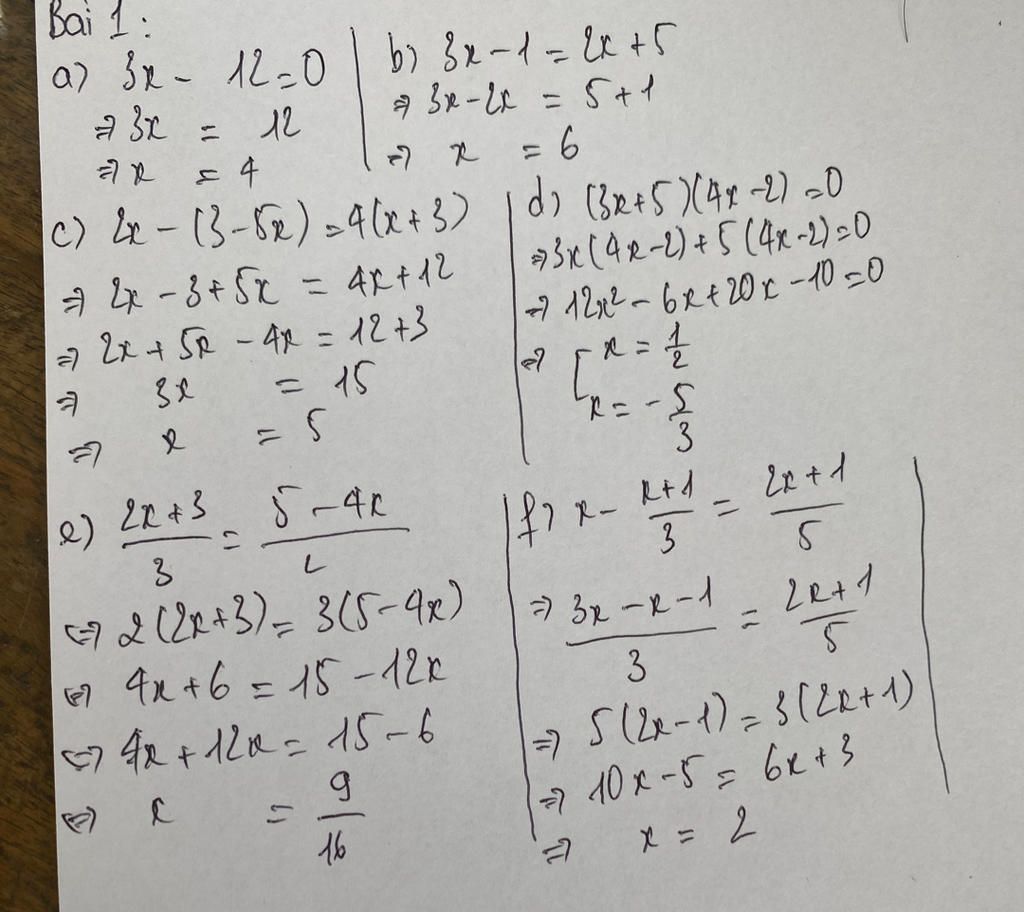 Bài 1:
a) 3x - 12 = 0
⇒ 3x = 12
⇒ x = 4
b) 3x - 1 = 2x + 5
⇒ 3x - 2x = 5 + 1
⇒ x = 6
c) 2x - (3 - 5x) = 4(x + 3)
⇒ 2x - 3 + 5x = 4x + 12
⇒ 2x + 5x - 4x = 12 + 3
⇒ 3x = 15
⇒ x = 5
d) (3x + 5)(4x - 2) = 0
⇒ 3x(4x - 2) + 5(4x - 2) = 0
⇒ 12x² - 6x + 20x - 10 = 0
⇒ [ x = 1/2
x = - 5/3
e) (2x + 3)/3 = (5 - 4x)/2
⇔ 2(2x + 3) = 3(5 - 4x)
⇔ 4x + 6 = 15 - 12x
⇔ 4x + 12x = 15 - 6
⇔ x = 9/16
f) x - (x + 1)/3 = (2x + 1)/5
⇒ (3x - x - 1)/3 = (2x + 1)/5
⇒ 5(2x - 1) = 3(2x + 1)
⇒ 10x - 5 = 6x + 3
⇒ x = 2